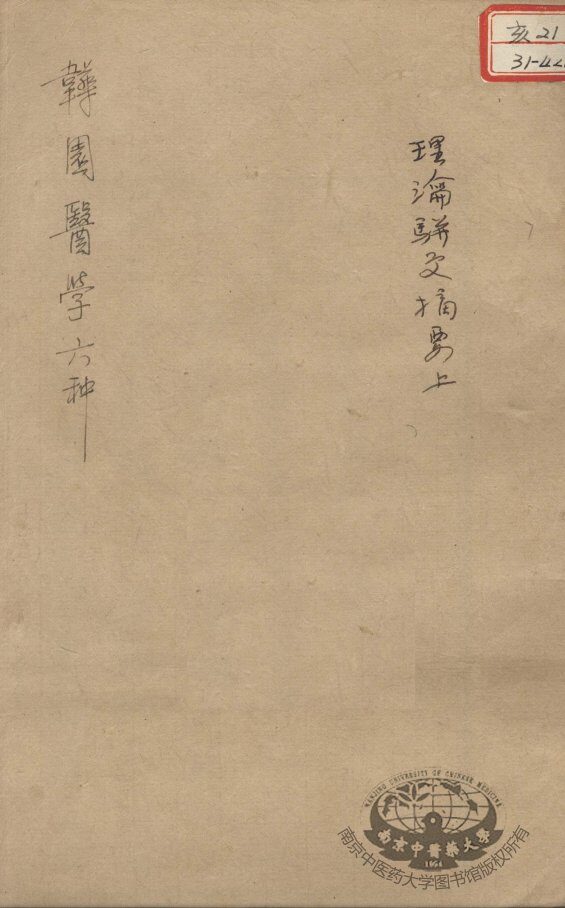 亥21
31-42
理瀹駢文摘要上
韡園醫学六种
NANJING UNIVERSITY OF CHINESE MEDICINE
南京中醫藥大學
南京中医药大学图书馆版权所有